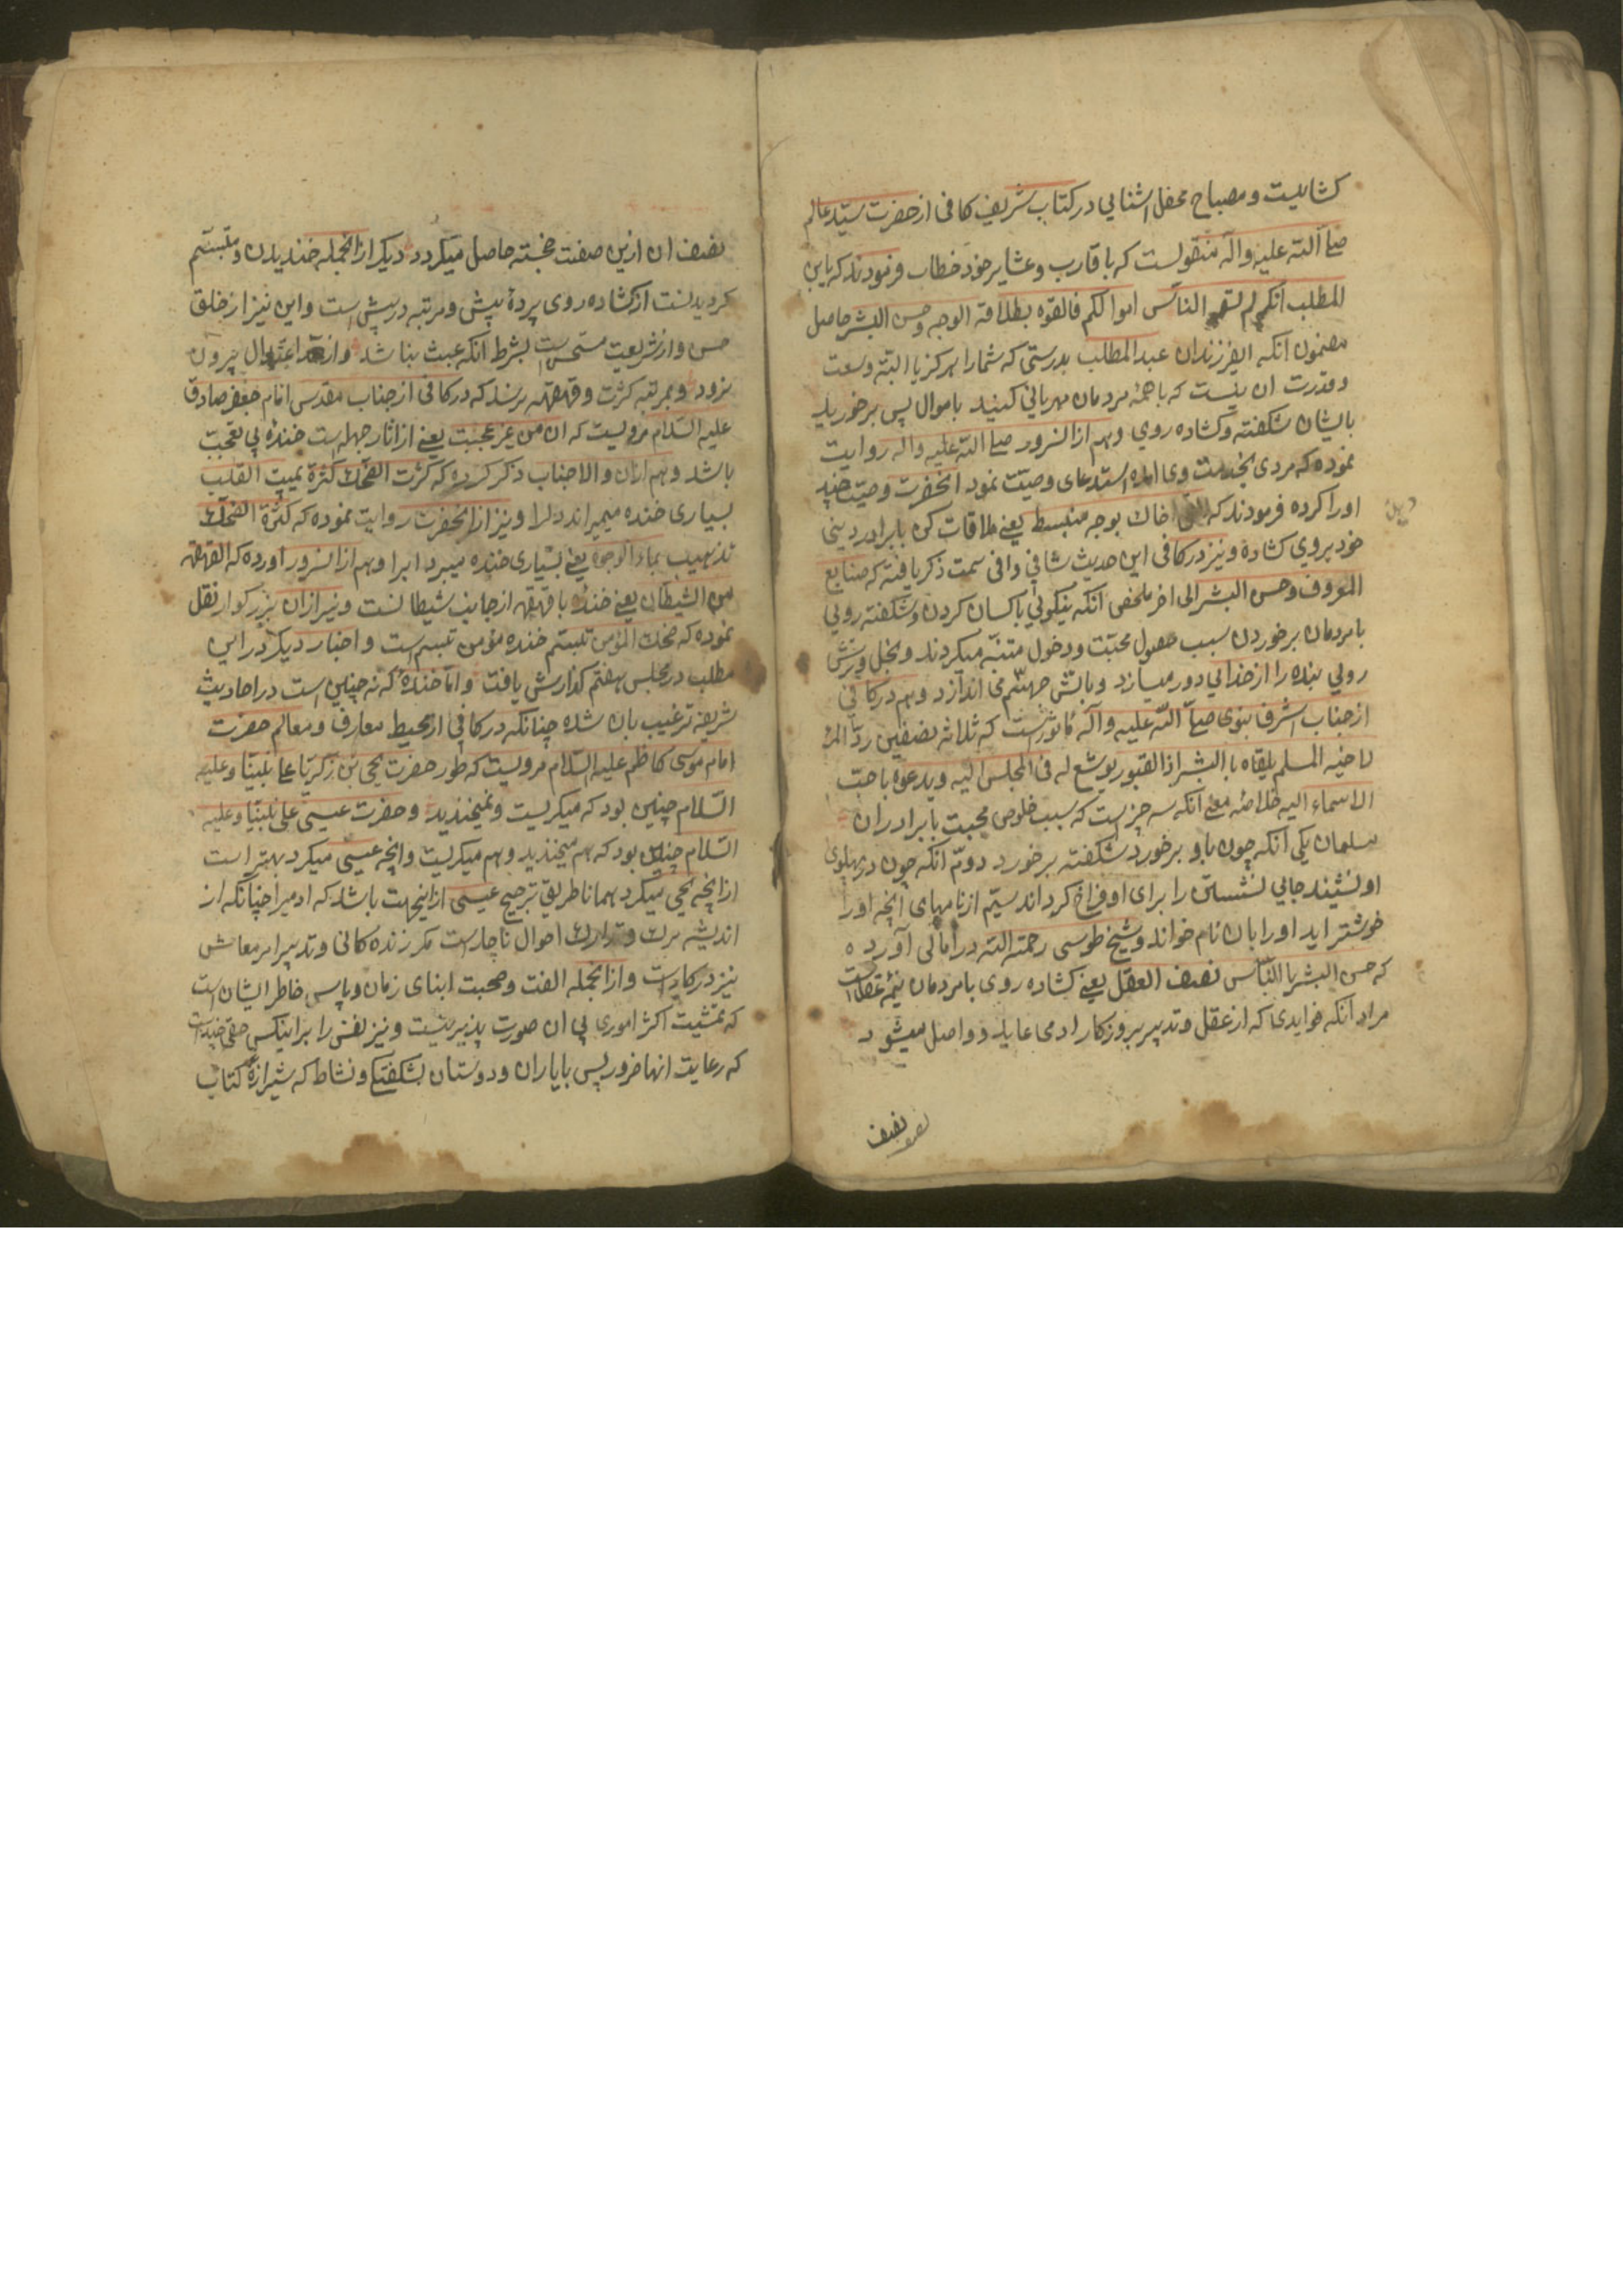 کشائیست و مصباح محفل اشنایی در کتاب شریف کافی از حضرت سیّد عالم
صلے الله علیه واله منقولست که باقارب و عشایر خود خطاب فرمودند که یابن
المطلب انکم لم تسعو الناس اموالکم فالقوه بطلاقة الوجه وحسن البشر حاصل
مضمون انکه ایفرزندان عبد المطلب بدرستی که شما را هرکز یا البته وسعت
و قدرت ان نیست که با همهٔ مردمان مهربانی کنید باموال پس برخورید
بایشان شکفته و کشاده روی وهم از انسرور صلے الله علیه واله روایت
نموده که مردی بخدمت وی امده استدعای وصیّت نمود انحضرت وصیّت چند
او را کرده فرمودند که الق اخاک بوجه منبسط یعنے ملاقات کن با برادر دینی
خود بروی کشاده و نیز در کافی این حدیث شافی وافی سمت ذکر یافته که صنایع
المعروف وحسن البشر الی اخر ملخص انکه نیکوئی باکسان کردن و شکفته رویی
با مردمان برخوردن سبب حصول محبّت و دخول جنّت میکردند و بخل و ترش
رویی بنده را از خدای دور میسازد و باتش جهنّم می اندازد وهم در کافی
از جناب اشرف نبوی صلے الله علیه واله ماثور است که ثلاثه یصفین ودّ المرء
لاخیه المسلم یلقاه بالبشر اذا لقیه و یوسّع له فی المجلس الیه ویدعوه باحبّ
الاسماء الیه خلاصهٔ معنے انکه سه چیز است که سبب خلوص محبت با برادران
مسلمان یکی انکه چون باو برخورد شکفته برخورد دوّم انکه چون در پهلوی
او نشیند جایی نشستن را برای او فراخ کرداند سیّم از نامهای انچه او را
خوشتر اید او را بان نام خواند و شیخ طوسی رحمة الله در امالی آورده
که حسن البشر بالنّاس نصف العقل یعنے کشاده روی با مردمان نیمهٔ عقلست
مراد انکه فوایدی که از عقل و تدبیر بروزکار ادمی عاید و واصل میشود
نصف
نصف ان ازین صفت خجسته حاصل میکردد دیکر از انجمله خندیدن و متبسّم
کردیدنست از کشاده روی پردهٔ بیش و مرتبه در پیش است و این نیز از خلق
حسن و از شریعت مستحسن است بشرط انکه عبث بناشد و از حد اعتدال بیرون
نرود و بمرتبه کثرت و قهقهه نرسد که در کافی از جناب مقدس امام جعفر صادق
علیه السّلام مرویست که ان من غیر عجبت یعنے از اثار جهل است خندهٔ بی تعجبت
باشد وهم از ان والاجناب ذکر کرده که کثرت الضحک کثرة یمیت القلب
بسیاری خنده میمیراند دلرا و نیز از انحضرت روایت نموده که کثرة الضحک
تذهیب بماء الوجه یعنے بسیاری خنده میبرد ابرا وهم از انسرور اورده که القهقهه
من الشیطان یعنے خنده با قهقهه از جانب شیطانست و نیز از ان بزرکوار نقل
نموده که ضحک المؤمن تبسّم خنده مؤمن تبسم است و اخبار دیکر در این
مطلب در مجلس هفتم کذارش یافت و اما خندهٔ که نه چنین است در احادیث
شریفه ترغیب بان شده چنانکه در کافی از محیط معارف و معالم حضرت
امام موسی کاظم علیه السّلام مرویست که طور حضرت یحیی بن زکریّا علے نبیّنا وعلیه
السّلام چنین بود که میکریست و نمیخندید و حضرت عیسی علی نبیّنا وعلیه
السّلام چنین بود که هم میخندید وهم میکریست وانچه عیسی میکرد بهتر است
از انچه یحیی میکرد همانا طریق ترجیح عیسی ازاینجهت باشد که ادمیرا چنانکه از
اندیشه مرک و تدارک احوال ناچار است مکر زنده کانی و تدبیر امر معاش
نیز در کار است و از انجمله الفت و صحبت ابنای زمان و پاس خاطر ایشان است
که تمشیت اکثر اموری بی ان صورت پذیر نیست و نیز نفس را بر اینکس حقی چند است
که رعایت انها ضرور پس با یاران و دوستان بشکفتکی و نشاط که شیرازهٔ کتاب